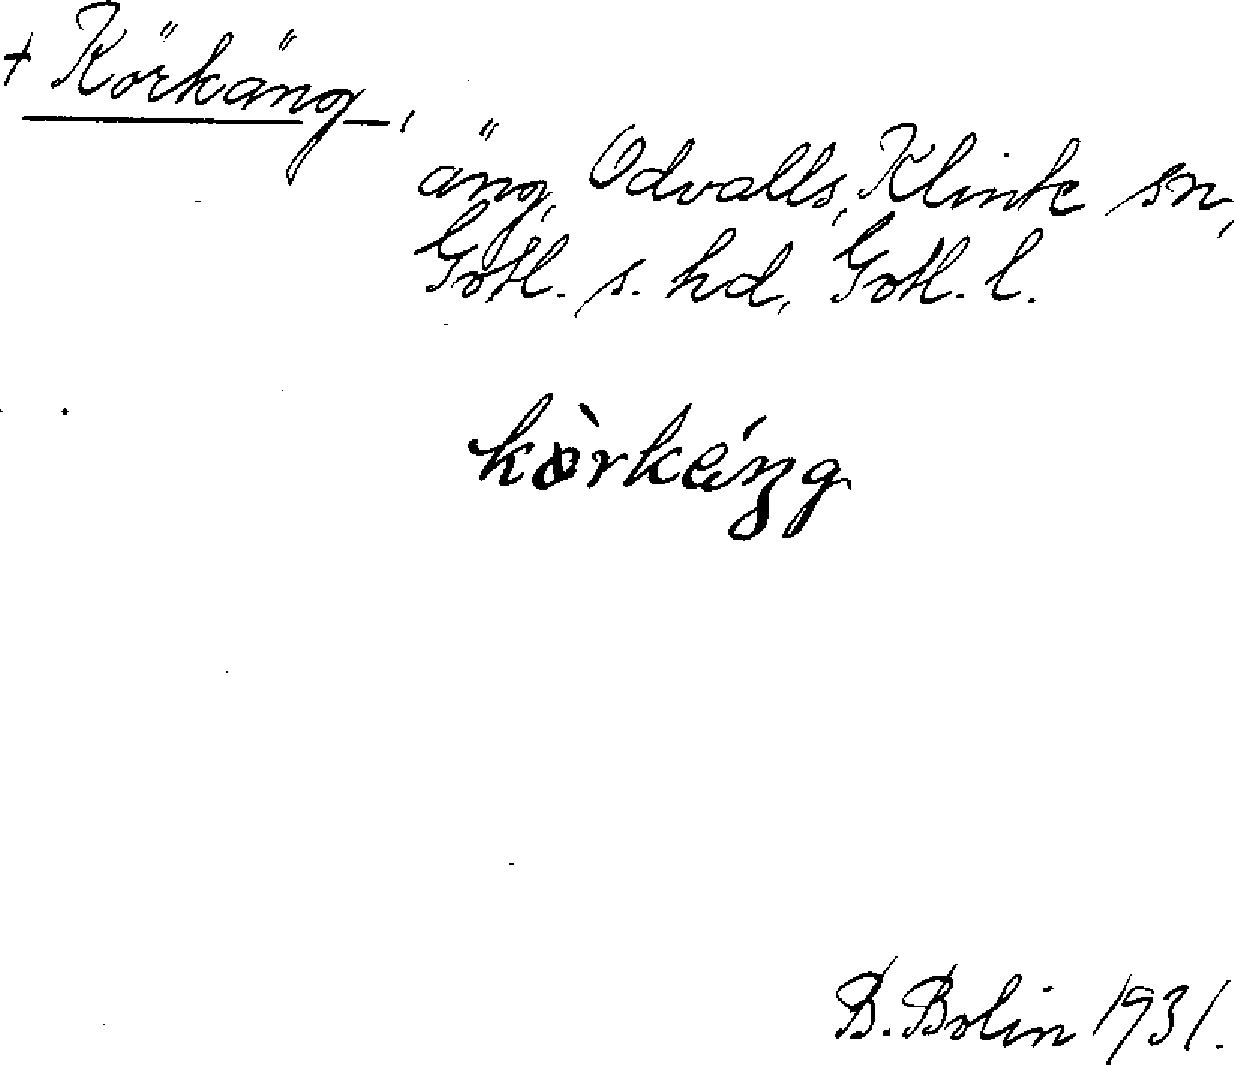 + Körkäng,
äng, Odvalls, Klinte sn,
Gotl. s. hd, Gotl. l.
kòrkéŋg
B. Bolin 1931.